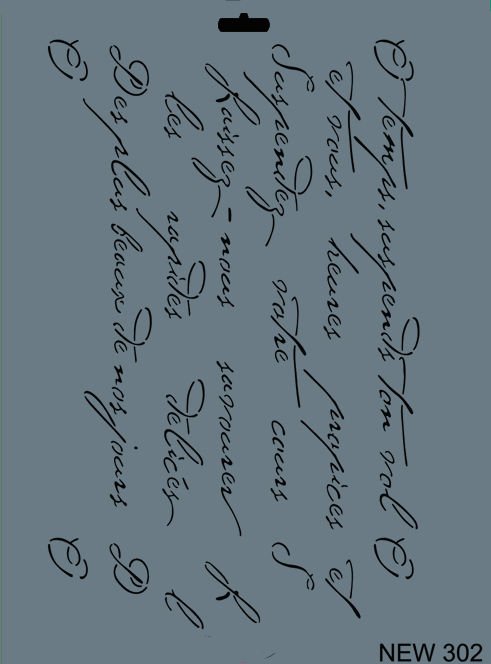 O temps, suspends ton vol O
et vous, heures propices et
Suspendez votre cours S
Laissez-nous savourer L
les rapides délices l
Des plus beaux de nos jours D
O O
NEW 302